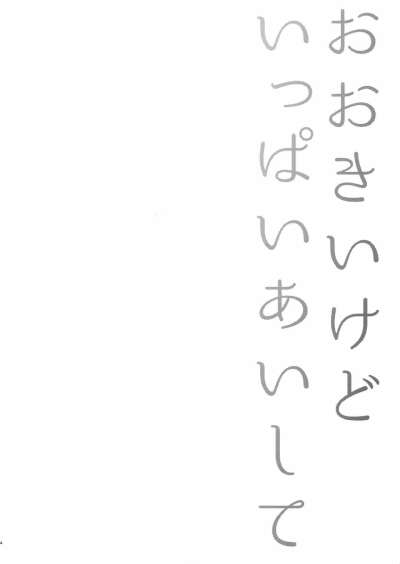 おおきいけど
いっぱいあいして